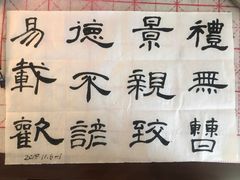 禮無曹
景親致
德不諺
易載歡
2018.11.6-1